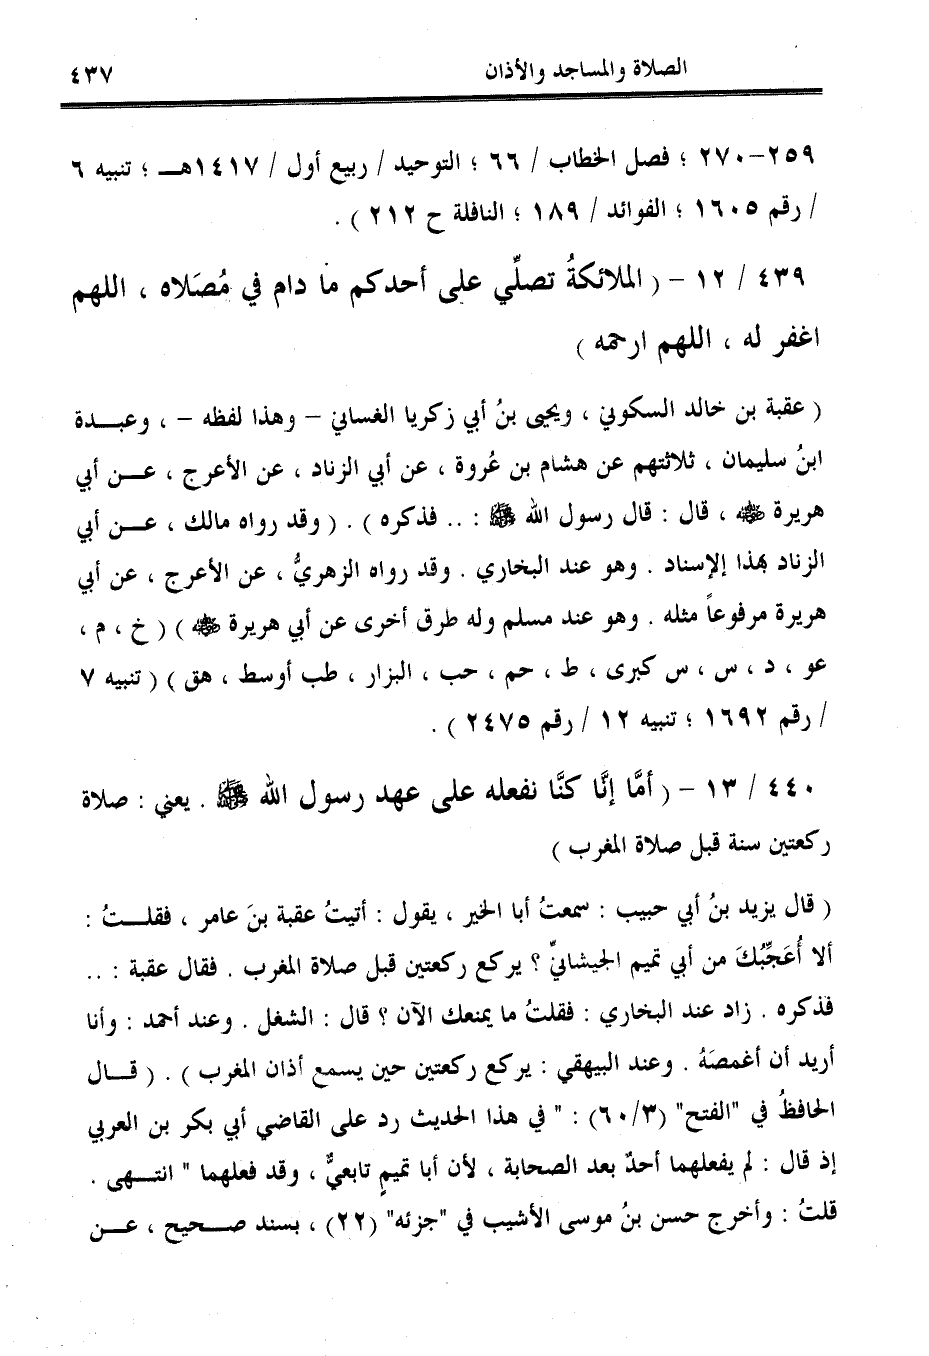 الصلاة والمساجد والأذان ٤٣٧
٢٥٩-٢٧٠ ؛ فصل الخطاب / ٦٦ ؛ التوحيد / ربيع أول / ١٤١٧هــ ؛ تنبيه ٦
/ رقم ١٦٠٥ ؛ الفوائد / ١٨٩ ؛ النافلة ح ٢١٢ ) .
٤٣٩ / ١٢ - ( الملائكةُ تصلِّي على أحدكم ما دام في مُصَلاه ، اللهم
اغفر له ، اللهم ارحمه )
( عقبة بن خالد السكوني ، ويحيى بنُ أبي زكريا الغساني – وهذا لفظه – ، وعبــدة
ابنُ سليمان ، ثلاثتهم عن هشام بن عُروة ، عن أبي الزناد ، عن الأعرج ، عــن أبي
هريرة ﷺ ، قال : قال رسول الله ﷺ : .. فذكره ) . ( وقد رواه مالك ، عــن أبي
الزناد بهذا الإسناد . وهو عند البخاري . وقد رواه الزهريُّ ، عن الأعرج ، عن أبي
هريرة مرفوعاً مثله . وهو عند مسلم وله طرق أخرى عن أبي هريرة ﷺ ) ( خ ، م ،
عو ، د ، س ، س كبرى ، ط ، حم ، حب ، البزار ، طب أوسط ، هق ) ( تنبيه ٧
/ رقم ١٦٩٢ ؛ تنبيه ١٢ / رقم ٢٤٧٥ ) .
٤٤٠ / ١٣ - ( أمَّا إنَّا كنَّا نفعله على عهد رسول الله ﷺ . يعني : صلاة
ركعتين سنة قبل صلاة المغرب )
( قال يزيد بنُ أبي حبيب : سمعتُ أبا الخير ، يقول : أتيتُ عقبة بنَ عامر ، فقلــتُ :
ألا أُعَجِّبُكَ من أبي تميم الجيشانيِّ ؟ يركع ركعتين قبل صلاة المغرب . فقال عقبة : ..
فذكره . زاد عند البخاري : فقلتُ ما يمنعك الآن ؟ قال : الشغل . وعند أحمد : وأنا
أريد أن أغمصَهُ . وعند البيهقي : يركع ركعتين حين يسمع أذان المغرب ) . ( قــال
الحافظُ في "الفتح" (٦٠/٣) : " في هذا الحديث رد على القاضي أبي بكر بن العربي
إذ قال : لم يفعلهما أحدٌ بعد الصحابة ، لأن أبا تميمٍ تابعيٌّ ، وقد فعلهما " انتــهى .
قلتُ : وأخرج حسن بنُ موسى الأشيب في "جزئه" (٢٢) ، بسند صــحيح ، عــن